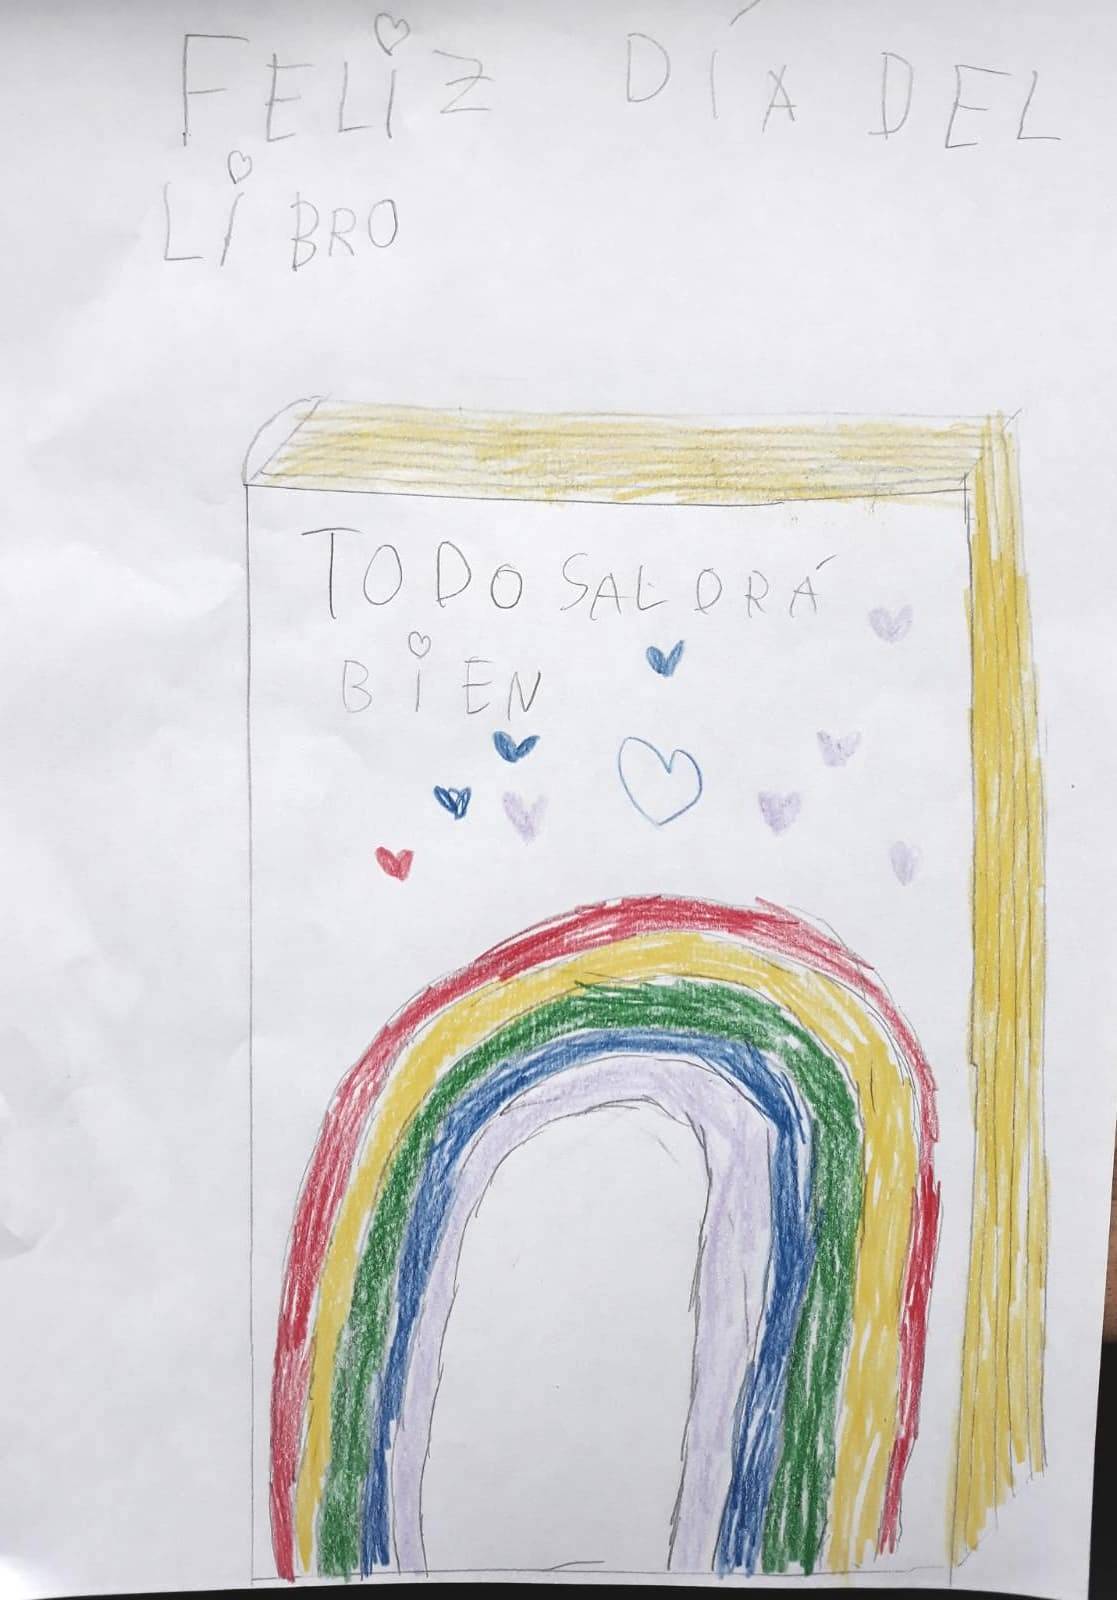 FELiZ DÍA DEL
LiBRO
TODO SALDRÁ
BiEN